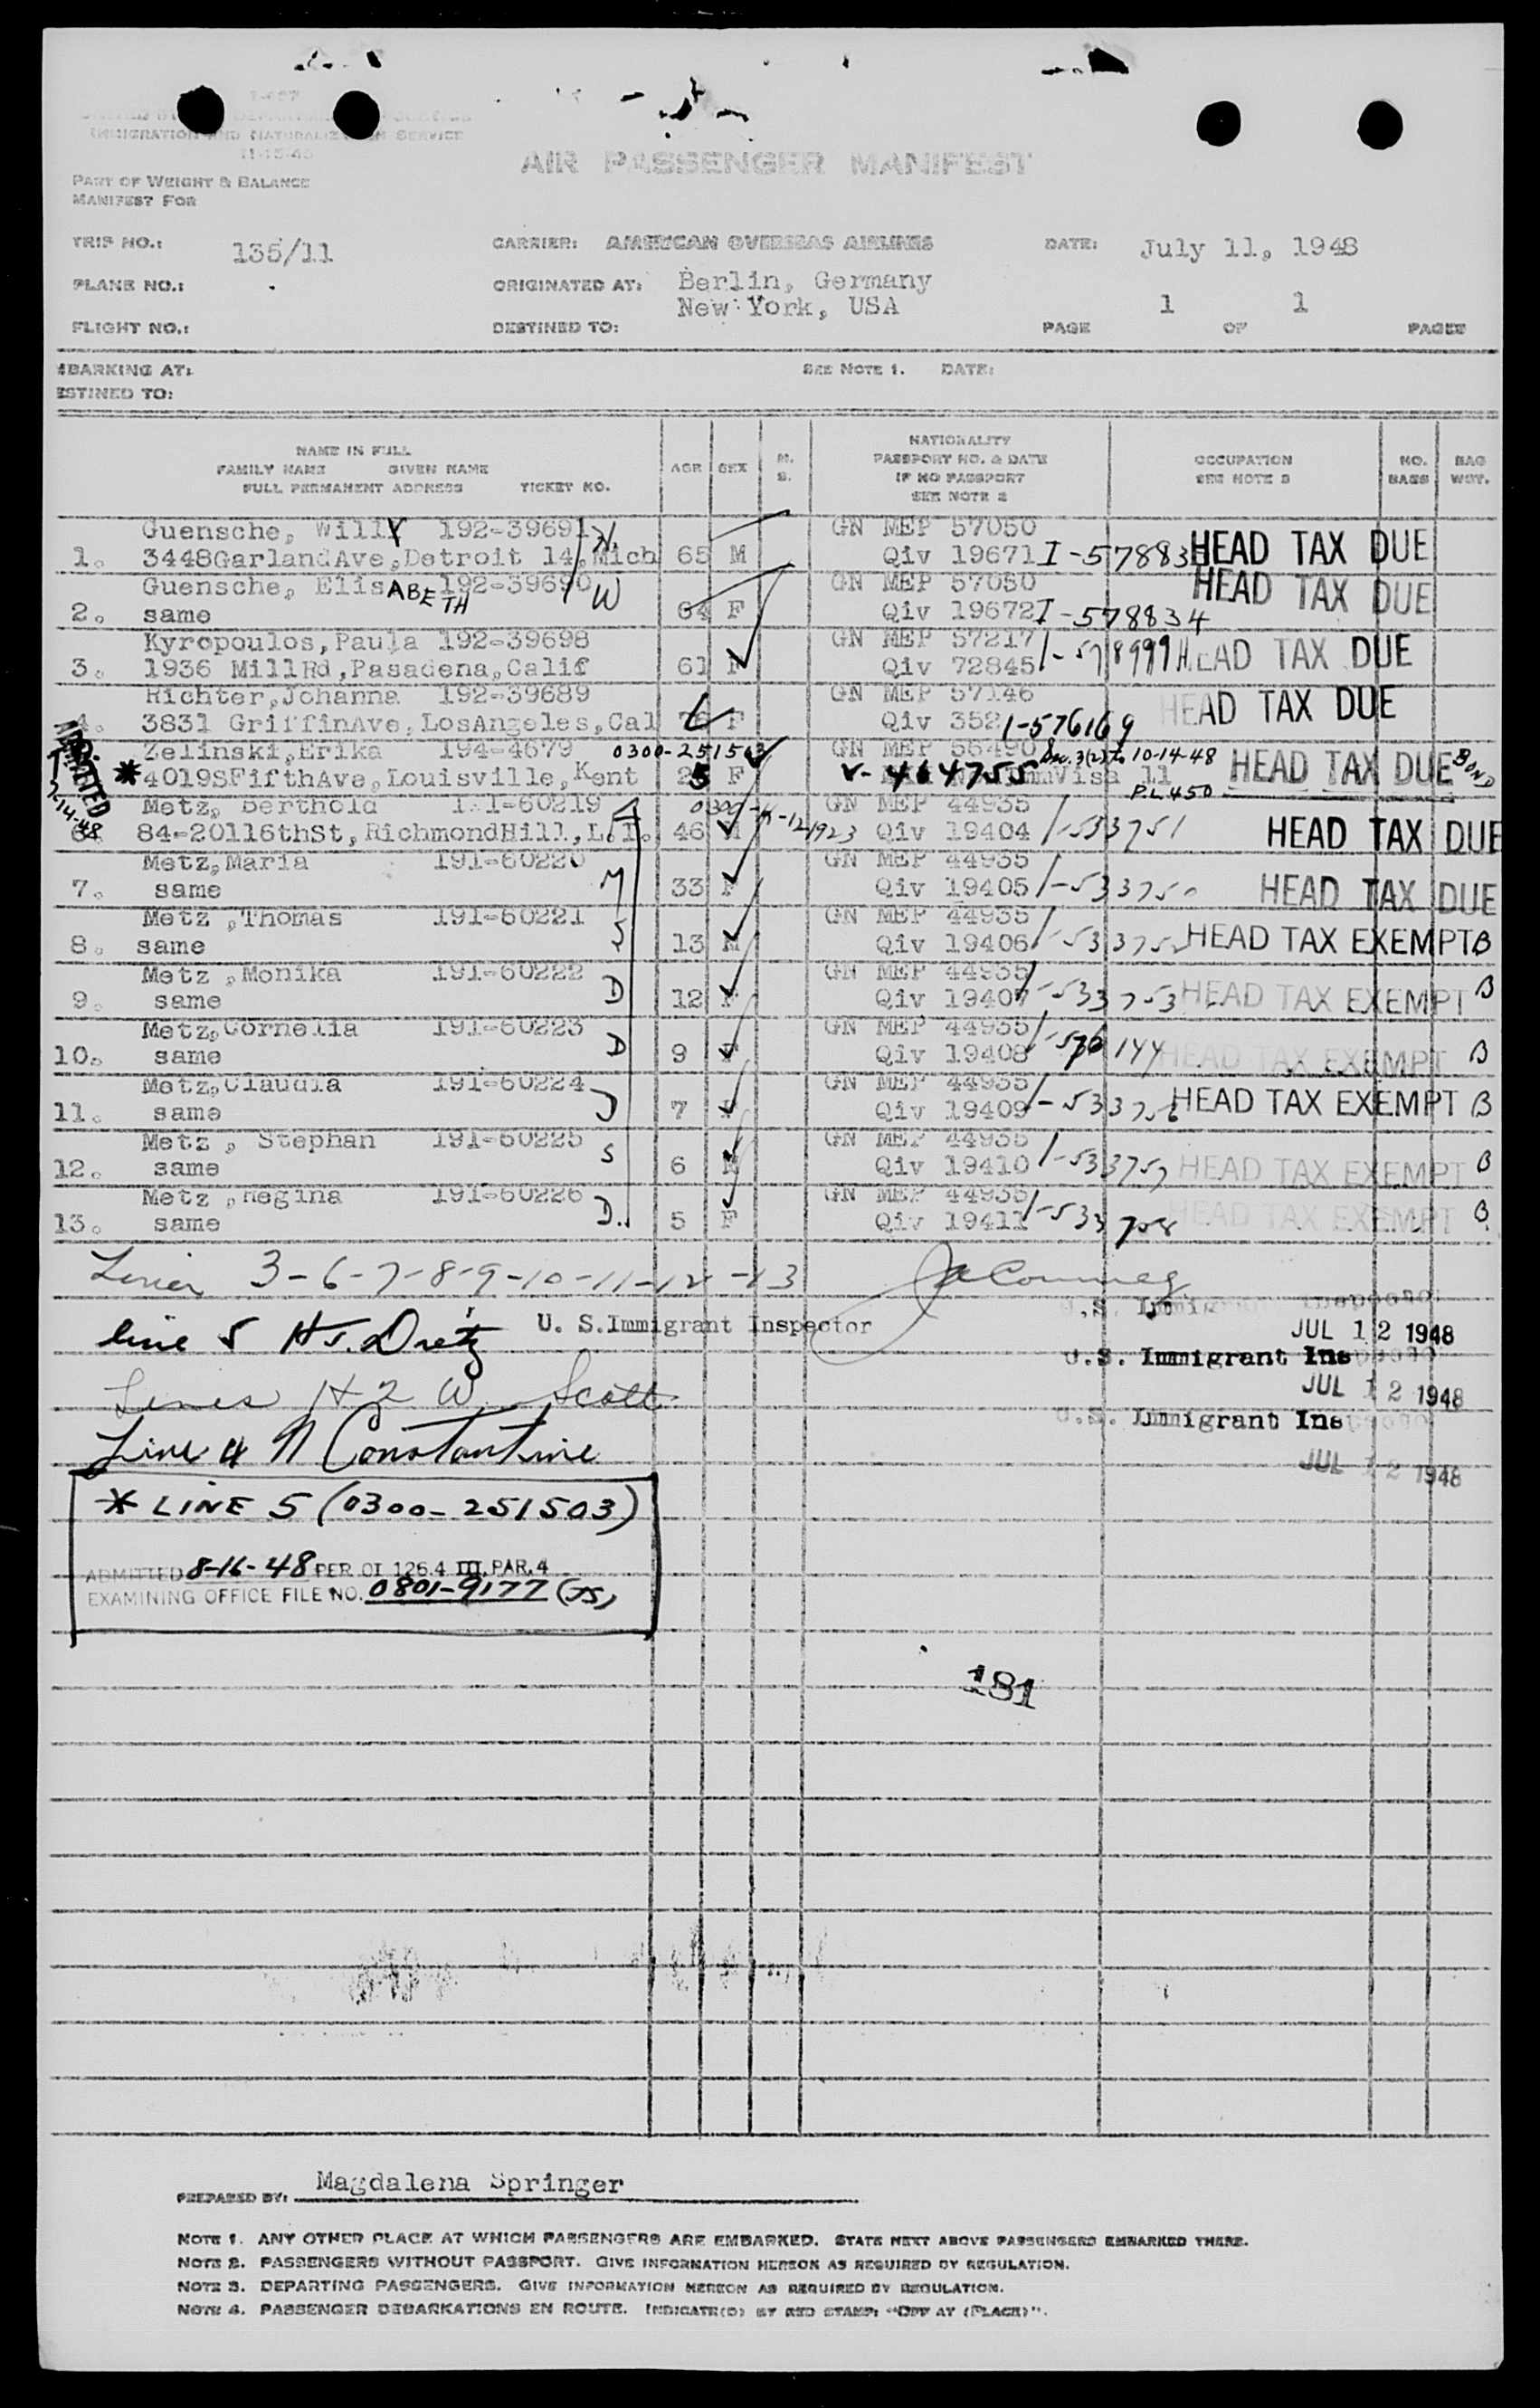 I-497
IMMIGRATION AND NATURALIZATION SERVICE
11-15-45
PART OF WEIGHT & BALANCE
MANIFEST FOR
AIR PASSENGER MANIFEST
TRIP NO.: 135/11 CARRIER: AMERICAN OVERSEAS AIRLINES DATE: July 11, 1948
PLANE NO.: ORIGINATED AT: Berlin, Germany
FLIGHT NO.: DESTINED TO: New York, USA PAGE 1 OF 1 PAGES
MBARKING AT: SEE NOTE 1. DATE:
ESTINED TO:
NAME IN FULL
FAMILY NAME GIVEN NAME
FULL PERMANENT ADDRESS TICKET NO.
AGE SEX M. S.
NATIONALITY
PASSPORT NO. & DATE
IF NO PASSPORT
SEE NOTE 2
OCCUPATION
SEE NOTE 3
NO. BAGS
BAG WGT.
Guensche, Willy 192-39691 H. GN MEP 57050
1. 3448GarlandAve,Detroit 14,Mich 65 M Qiv 19671 I-578833 HEAD TAX DUE
Guensche, ElisABETH 192-39690 W GN MEP 57050 HEAD TAX DUE
2. same 64 F Qiv 19672 I-578834
Kyropoulos,Paula 192-39698 GN MEP 57217
3. 1936 MillRd,Pasadena,Calif 61 F Qiv 72845 I-578999 HEAD TAX DUE
Richter,Johanna 192-39689 GN MEP 57146
4. 3831 GriffinAve,LosAngeles,Cal 76 F Qiv 352 I-576169 HEAD TAX DUE
ADMITTED
7-14-48
Zelinski,Erika 194-4679 0300-251503 GN MEP 56490 Sec. 3(2) to 10-14-48
* 4019SFifthAve,Louisville,Kent 25 F V-464755 HEAD TAX DUE BOND
P.L 450
Metz, Berthold 191-60219 GN MEP 44935
6. 84-20116thSt,RichmondHill,L.I. 46 M Qiv 19404 I-533751 HEAD TAX DUE
Metz,Maria 191-60220 GN MEP 44935
7. same M 33 F Qiv 19405 I-533750 HEAD TAX DUE
Metz ,Thomas 191-60221 GN MEP 44935
8. same S 13 M Qiv 19406 I-533752 HEAD TAX EXEMPT B
Metz ,Monika 191-60222 GN MEP 44935
9. same D 12 F Qiv 19407 I-533753 HEAD TAX EXEMPT B
Metz,Cornelia 191-60223 GN MEP 44935
10. same D 9 F Qiv 19408 I-576144 HEAD TAX EXEMPT B
Metz,Claudia 191-60224 GN MEP 44935
11. same D 7 F Qiv 19409 I-533756 HEAD TAX EXEMPT B
Metz , Stephan 191-60225 GN MEP 44935
12. same S 6 M Qiv 19410 I-533757 HEAD TAX EXEMPT B
Metz ,Regina 191-60226 GN MEP 44935
13. same D. 5 F Qiv 19411 I-533758 HEAD TAX EXEMPT B
Lines 3-6-7-8-9-10-11-12-13
U.S. Immigrant Inspector
line 5 H.J. Dietz U. S.Immigrant Inspector JUL 12 1948
U.S. Immigrant Inspector
Lines 1+2 W. Scott JUL 12 1948
U.S. Immigrant Inspector
Line 4 N Constantine JUL 12 1948
* LINE 5 (0300-251503)
ADMITTED 8-16-48 PER OI 126.4 III, PAR. 4
EXAMINING OFFICE FILE NO. 0801-9177 (JS)
181
PREPARED BY: Magdalena Springer
NOTE 1. ANY OTHER PLACE AT WHICH PASSENGERS ARE EMBARKED. STATE NEXT ABOVE PASSENGERS EMBARKED THERE.
NOTE 2. PASSENGERS WITHOUT PASSPORT. GIVE INFORMATION HEREON AS REQUIRED BY REGULATION.
NOTE 3. DEPARTING PASSENGERS. GIVE INFORMATION HEREON AS REQUIRED BY REGULATION.
NOTE 4. PASSENGER DEBARKATIONS EN ROUTE. INDICATE(D) BY RED STAMP: "OFF AT (PLACE)".